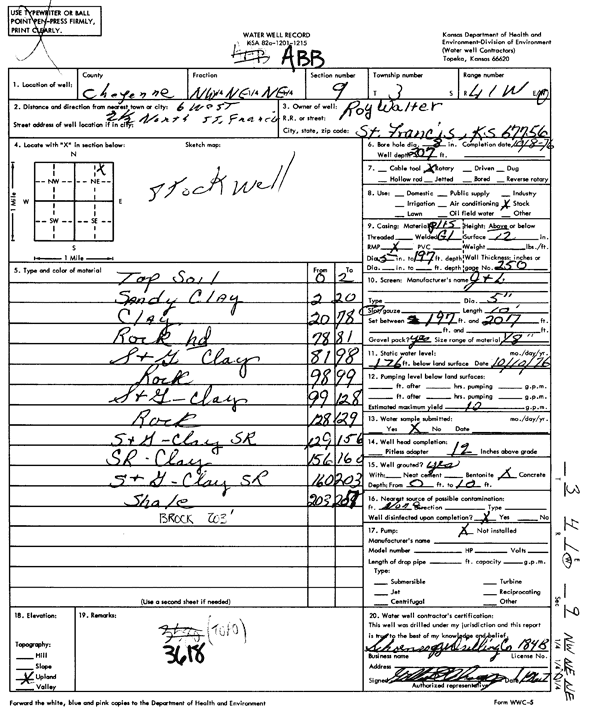 USE TYPEWRITER OR BALL
POINT PEN-PRESS FIRMLY,
PRINT CLEARLY.
WATER WELL RECORD
KSA 82a-1201-1215
ABB
Kansas Department of Health and
Environment-Division of Environment
(Water well Contractors)
Topeka, Kansas 66620
1. Location of well: County Cheyenne Fraction NW¼ NE¼ NE¼ Section number 9 Township number T 3 S Range number R 41 W E/W
2. Distance and direction from nearest town or city: 6 West
2½ North St. Francis
Street address of well location if in city:
3. Owner of well: Roy Walter
R.R. or street:
City, state, zip code: St. Francis, KS 67756
4. Locate with "X" in section below: Sketch map:
N
X
NW NE
W E
SW SE
S
1 Mile
1 Mile
Stock Well
6. Bore hole dia. 8 in. Completion date 10/8-76
Well depth 207 ft.
7. Cable tool X Rotary Driven Dug
Hollow rod Jetted Bored Reverse rotary
8. Use: Domestic Public supply Industry
Irrigation Air conditioning X Stock
Lawn Oil field water Other
9. Casing: Material Height: Above or below
Threaded Welded Gl Surface 12 in.
RMP X PVC Weight lbs./ft.
Dia. 5 in. to 197 ft. depth Wall Thickness: inches or
Dia. in. to ft. depth gage No. 250
5. Type and color of material From To
Top Soil 0 2
Sandy Clay 2 20
Clay 20 78
Rock hd 78 81
S+G Clay 81 98
Rock 98 99
S+G-Clay 99 128
Rock 128 129
S+G-Clay SR 129 156
SR-Clay 156 160
S+G-Clay SR 160 203
Shale 203 207
BROCK 203'
(Use a second sheet if needed)
10. Screen: Manufacturer's name
Type Dia. 5"
Slot/gauze Length 10'
Set between 197 ft. and 207 ft.
ft. and ft.
Gravel pack? yes Size range of material 1/8"
11. Static water level: mo./day/yr.
176 ft. below land surface Date 10/10/76
12. Pumping level below land surfaces:
ft. after hrs. pumping g.p.m.
ft. after hrs. pumping g.p.m.
Estimated maximum yield 10 g.p.m.
13. Water sample submitted: mo./day/yr.
Yes X No Date
14. Well head completion:
Pitless adapter 12 Inches above grade
15. Well grouted? yes
With: Neat cement Bentonite X Concrete
Depth: From 0 ft. to 10 ft.
16. Nearest source of possible contamination:
ft. None Direction Type
Well disinfected upon completion? X Yes No
17. Pump: X Not installed
Manufacturer's name
Model number HP Volts
Length of drop pipe ft. capacity g.p.m.
Type:
Submersible Turbine
Jet Reciprocating
Centrifugal Other
18. Elevation:
Topography:
Hill
Slope
X Upland
Valley
19. Remarks:
(Topo)
3618
20. Water well contractor's certification:
This well was drilled under my jurisdiction and this report
is true to the best of my knowledge and belief.
Drilling Co 184B
Business name License No.
Address
Signed Date
Authorized representative
T 3 R 41 E W Sec 9 NW NE NE
1/4 1/4 1/4
Forward the white, blue and pink copies to the Department of Health and Environment
Form WWC-5